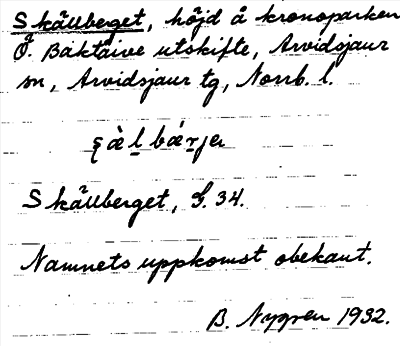 Skällberget, höjd å kronoparken
Ö. Baktäive utskifte, Arvidsjaur
sn, Arvidsjaur tg, Norrb. l.
Skällberget, G. 34.
Namnets uppkomst obekant.
B. Nygren 1932.